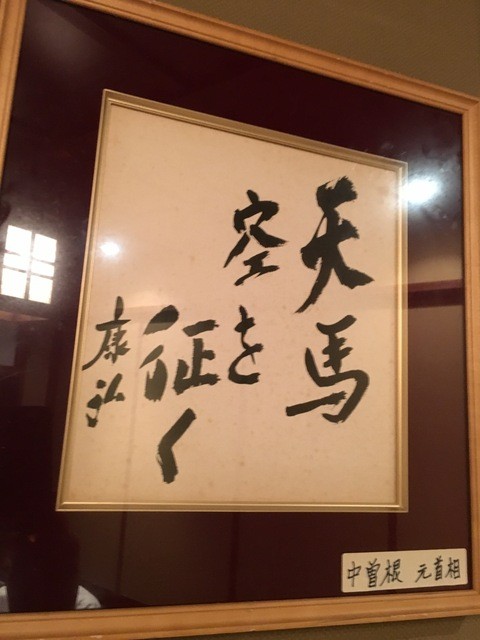 天馬
空を
征く
康弘
中曽根 元首相